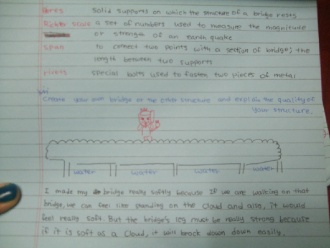 Piers solid supports on which the structure of a bridge rests
Richter scale a set of numbers used to measure the magnitude
or strength of an earth quake
Span to connect two points with a section of bridge; the
length between two supports
rivets special bolts used to fasten two pieces of metal
Create your own bridge or the other structure and explain the quality of
your structure.
water water water water
I made my bridge really softly because if we are walking on that
bridge, we can feel like standing on the cloud and also, it would
feel really soft. But the bridge's leg must be really strong because
if it is soft as a cloud, it will break down easily.